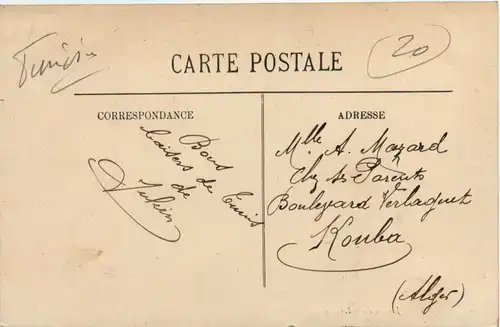 Tunisie
20
CARTE POSTALE
CORRESPONDANCE
Bons
baisers de Tunis
de
Julien
ADRESSE
Mlle A. Mazard
Chez ses Parents
Boulevard Verhaguet
Kouba
(Alger)